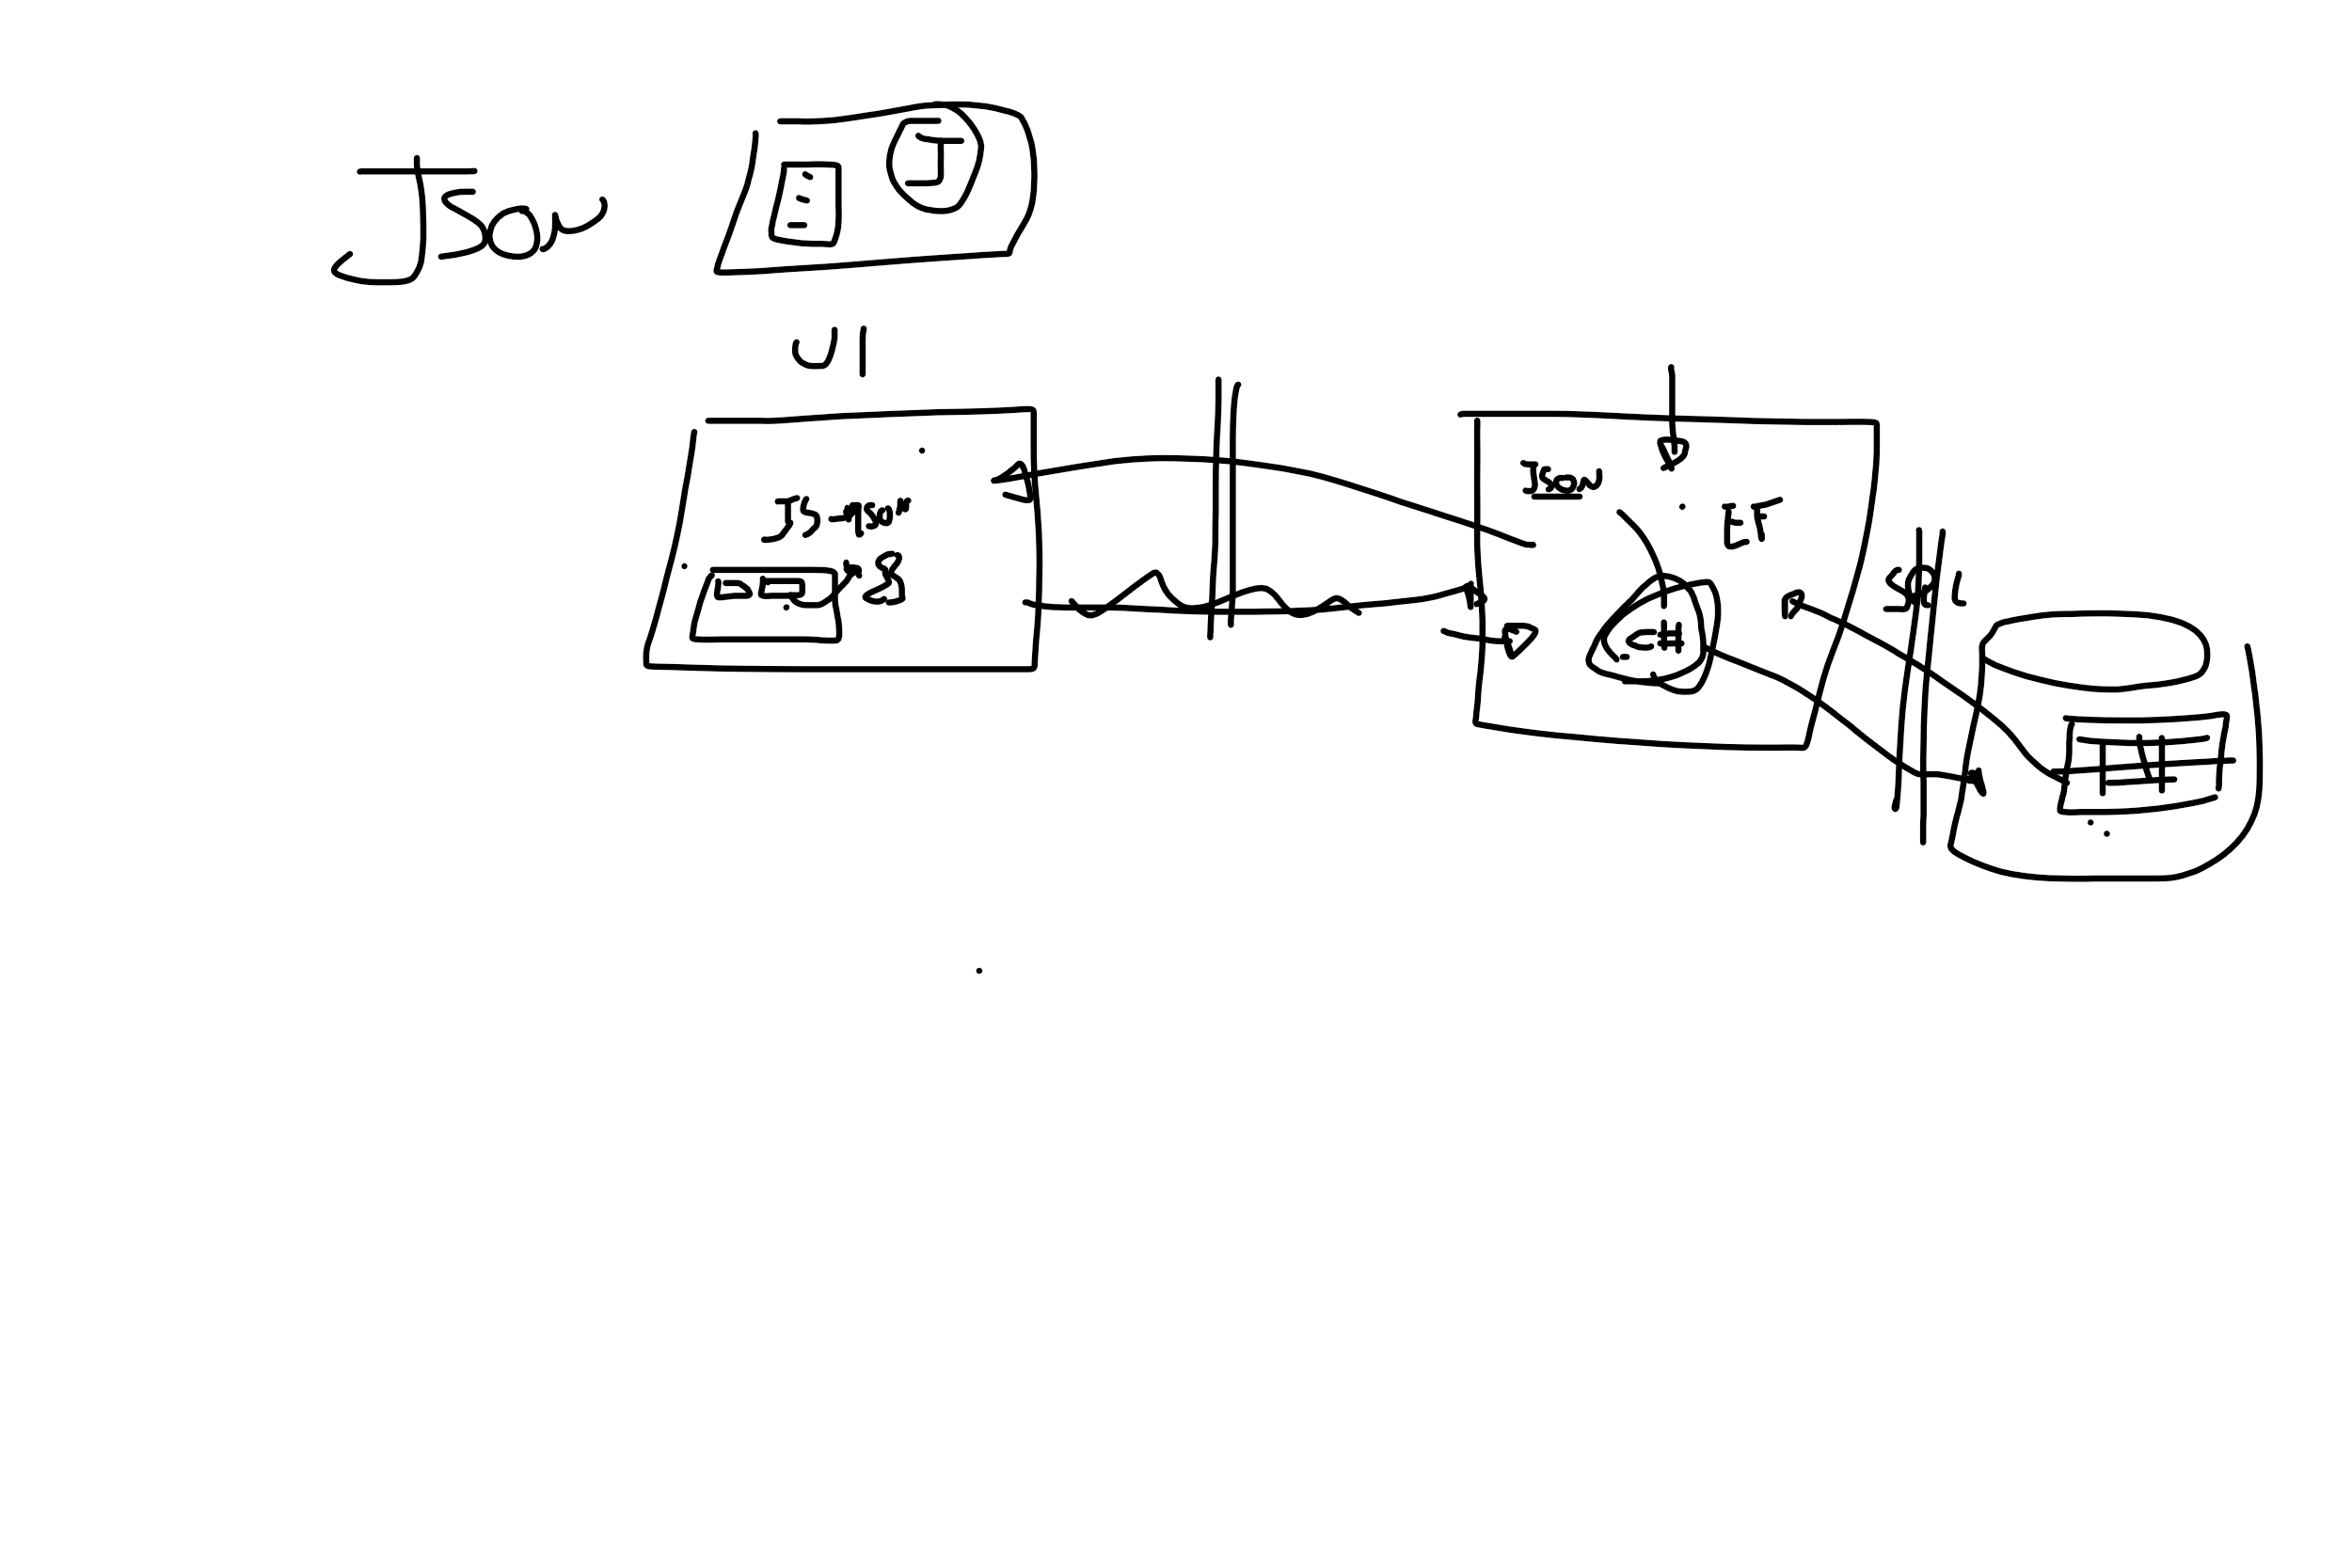 Json
J
UI
Json
Json
EF
C#
SQL